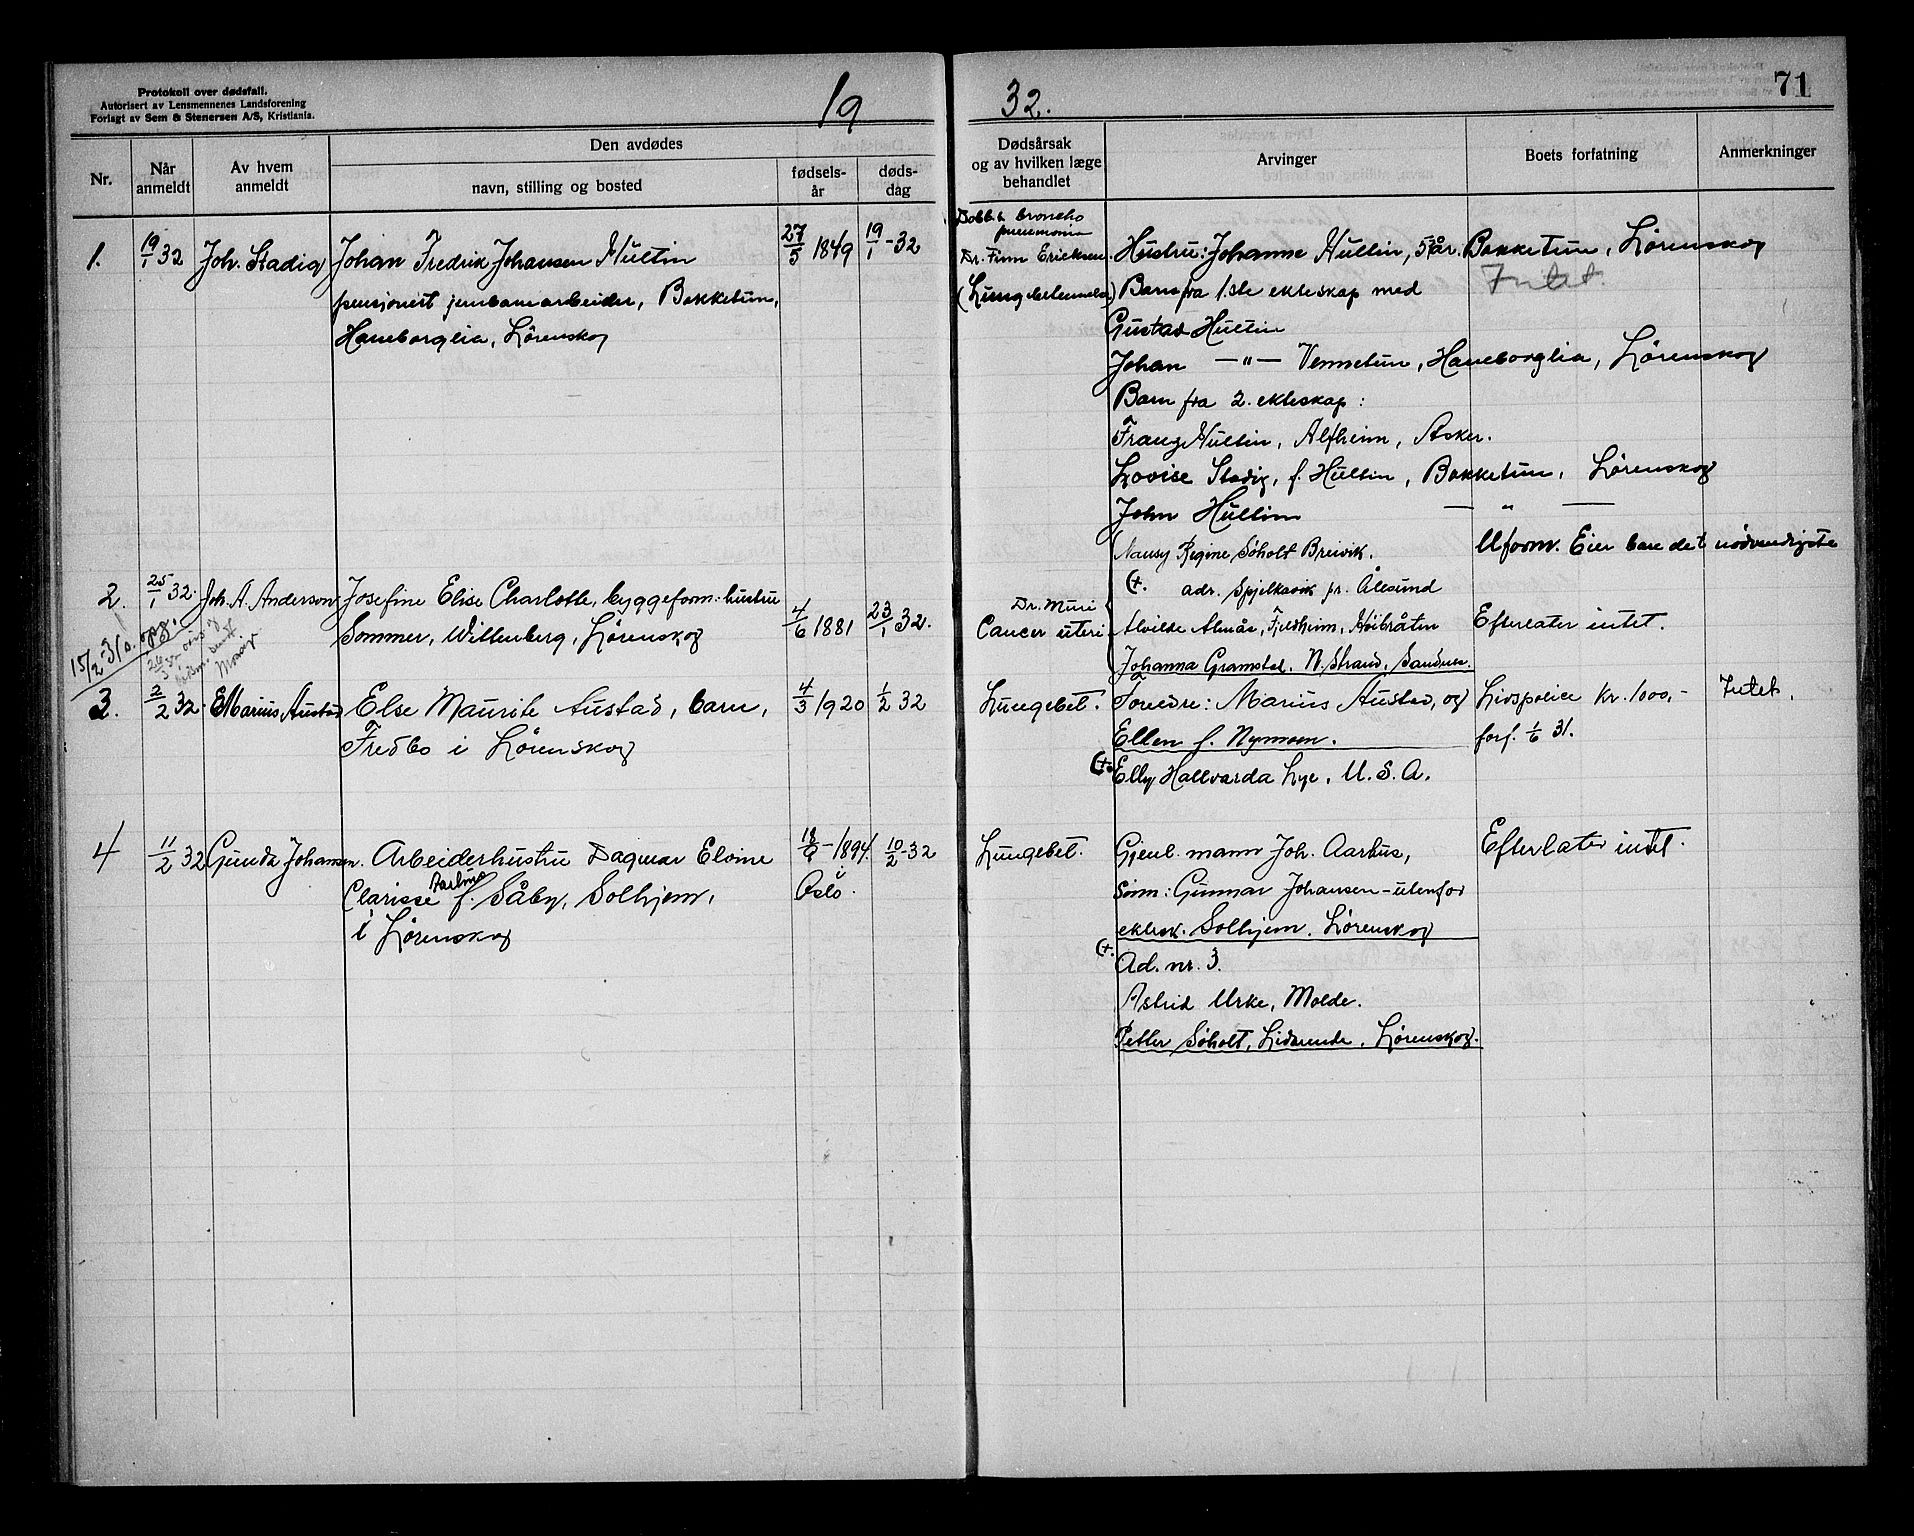 Protokoll over dødsfall.
Autorisert av Lensmennenes Landsforening
Forlagt av Sem & Stenersen A/S, Kristiania.
19 32.
71
Nr.
Når anmeldt
Av hvem anmeldt
Den avdødes
navn, stilling og bosted
fødsels-år
døds-dag
Dødsårsak og av hvilken læge behandlet
Arvinger
Boets forfatning
Anmerkninger
1. 19/1 32 Joh. Stadig Johan Fredrik Johansen Hultin 27/5 1849 19/1-32
pensjonert jernbanearbeider, Bakketun,
Haneborglia, Lørenskog
Dobb. broncho
pneumonia
Dr. Finn Ericksen.
(Lungebetennelse)
Hustru: Johanne Hultin, år. Bakketun, Lørenskog
Barn fra 1.ste ekteskap med
Intet.
Gustav Hultin
Johan —"— Vennetun, Haneborglia, Lørenskog
Barn fra 2. ekteskap:
Franz Hultin, Alfheim, Asker.
Lovise Stadig, f. Hultin, Bakketun, Lørenskog
John Hultin — " —
2. 25/1 32. Joh. A. Anderson Josefine Elise Charlotte, byggeform. hustru
Sommer, Wittenberg, Lørenskog
4/6 1881 23/1 32.
Dr. Muri
Cancer uteri
Nansy Regine Søholt Breivik.
(+. adr. Spjelkavik pr. Ålesund
Alvilde Almås, Fjeldheim, Høibråten
Johanna Gramstad, N. Strand, Sandnes.
Uform. Eier bare det nødvendigste
Efterlater intet.
15/2-31
3. 2/2 32. E Marius Austad Else Maurite Austad, barn,
Fredbo i Lørenskog
4/3 1920 1/2 32
Lungebet.
Foreldre: Marius Austad, og
Ellen f. Nymoen.
(+. Elly Hallvarda Lye, U.S.A.
Livspolice kr. 1000,-
forf. 1/6 31.
Intet.
4 11/2 32 Gunda Johansen. Arbeiderhustru Dagmar Elvine
Clarisse Aarhus f. Såby, Solhjem,
i Lørenskog
18/9-1894. 10/2-32
Oslo.
Lungebet.
Gjenl. mann Joh. Aarhus,
Sønn: Gunnar Johansen - utenfor
ektesk. Solhjem. Lørenskog
Efterlater intet.
(+.
Ad. nr. 3.
Astrid Urke, Molde.
Petter Søholt, Lidarende, Lørenskog.